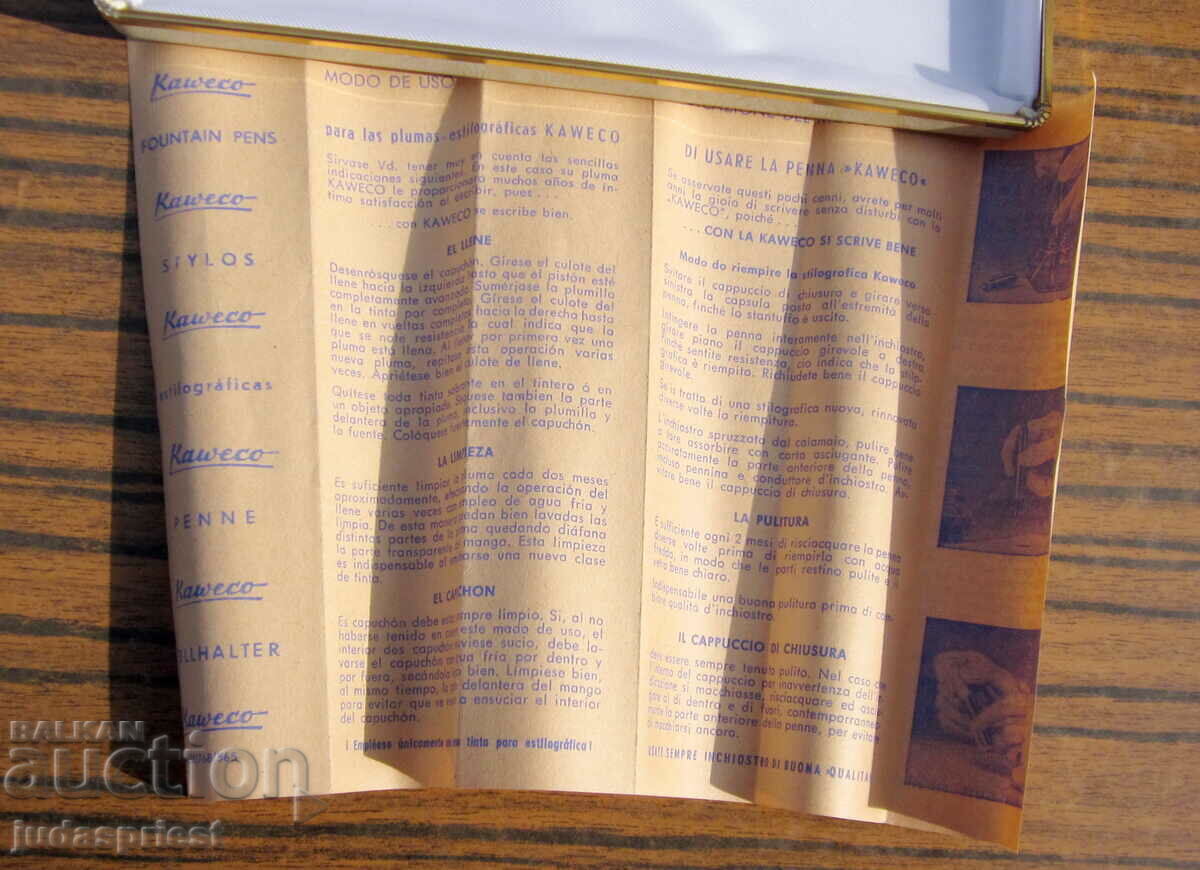 Kaweco
FOUNTAIN PENS
Kaweco
STYLOS
Kaweco
estilográficas
Kaweco
PENNE
Kaweco
LLHALTER
Kaweco
MODO DE USO
para las plumas-estilográficas KAWECO
Sírvase Vd. tener muy en cuenta las sencillas
indicaciones siguientes! En este caso su pluma
KAWECO le proporcionará muchos años de ín-
tima satisfacción al escribir, pues . . .
. . . con KAWECO se escribe bien.
EL LLENE
Desenrósquase el capuchón. Gírese el culote del
llene hacia la izquierda hasta que el pistón esté
completamente avanzado. Sumérjase la plumilla
en la tinta por completo. Gírese el culote del
llene en vueltas completas hacia la derecha hasta
que se note resistencia, lo cual indica que la
pluma está llena. Al llenar por primera vez una
nueva pluma, repítase esta operación varias
veces. Apriétese bien el culote de llene.
Quítese toda tinta sobrante en el tintero ó en
un objeto apropiado. Séquese tambien la parte
delantera de la pluma, inclusivo la plumilla y
la fuente. Colóquese fuertemente el capuchón.
LA LIMPIEZA
Es suficiente limpiar la pluma cada dos meses
aproximadamente, efectuando la operación del
llene varias veces con empleo de agua fría y
limpia. De esta manera quedan bien lavadas las
distintas partes de la pluma quedando diáfana
la parte transparente del mango. Esta limpieza
es indispensable al emplearse una nueva clase
de tinta.
EL CAPUCHON
Es capuchón debe estar siempre limpio. Si, al no
haberse tenido en cuenta este modo de uso, el
interior des capuchón estuviese sucio, debe la-
varse el capuchón con agua fría por dentro y
por fuera, secándolo bien. Límpiese bien,
al mismo tiempo, la parte delantera del mango
para evitar que se vuelva a ensuciar el interior
del capuchón.
¡ Empléese únicamente buena tinta para estilográfica !
DI USARE LA PENNA »KAWECO«
Se osservate questi pochi cenni, avrete per molti
anni la gioia di scrivere senza disturbi con la
„KAWECO", poiché . . .
. . . CON LA KAWECO SI SCRIVE BENE
Modo do riempire la stilografica Kaweco
Svitare il cappuccio di chiusura e girare verso
sinistra la capsula posta all'estremità della
penna, finchè lo stantuffo è uscito.
Intingere la penna interamente nell'inchiostro,
girare piano il cappuccio girevole a destra,
finche sentite resistenza, cio indica che la stilo-
grafica è riempita. Richiudete bene il cappuccio
girevole.
Se si tratta di una stilografica nuova, rinnovate
diverse volte la riempitura.
L'inchiostro spruzzato dal calamaio, pulire bene
o fare assorbire con carta asciugante. Pulire
accuratamente la parte anteriore della penna,
incluso pennina e conduttore d'inchiostro. Av-
vitare bene il cappuccio di chiusura.
LA PULITURA
E sufficiente ogni 2 mesi di risciacquare la penna
diverse volte prima di riempirla con acqua
fredda, in modo che le parti restino pulite e il
vetro bene chiaro.
Indispensabile una buona pulitura prima di cam-
biare qualità d'inchiostro.
IL CAPPUCCIO DI CHIUSURA
deve essere sempre tenuto pulito. Nel caso che
l'interno del cappuccio per inavvertenza dell'i-
dicazione si macchiasse, risciacquare ed asciu-
gare al di dentro e di fuori, contemporanea-
mente la parte anteriore della penna, per evitare
di macchiarsi ancora.
USATE SEMPRE INCHIOSTRO DI BUONA »QUALITA
BALKAN
auction
judaspriest